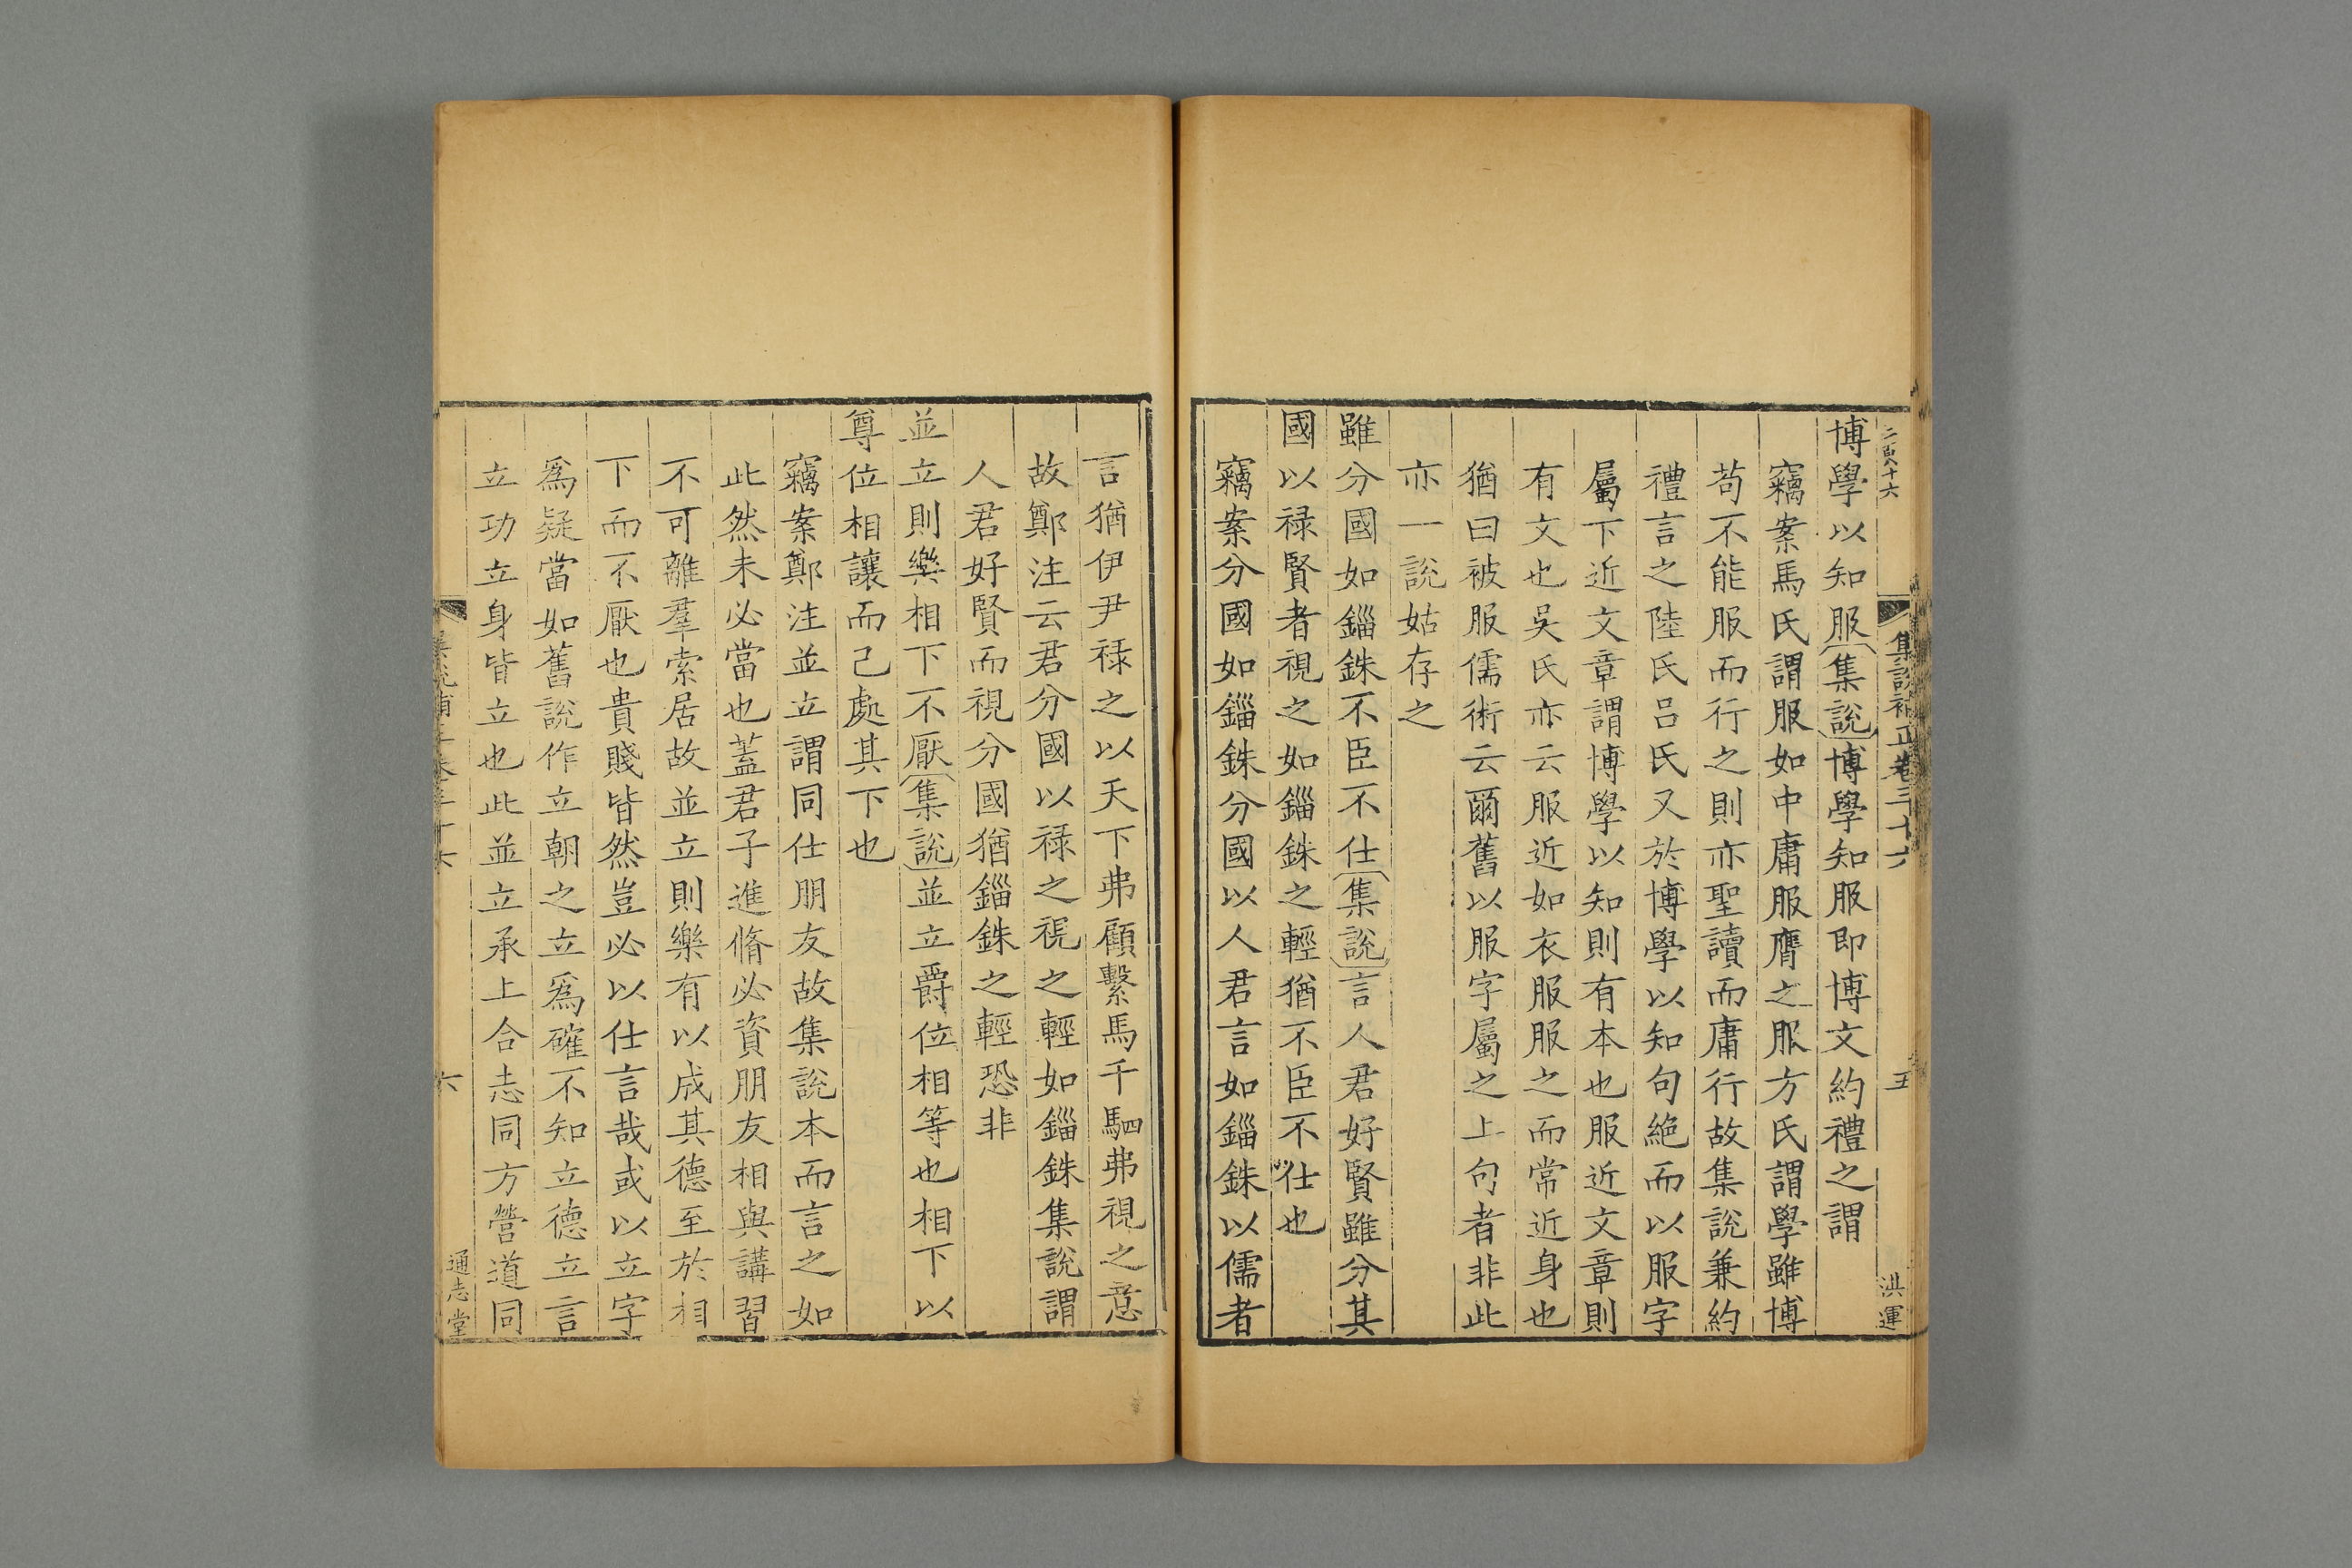 二百八十六
集說補正卷三十六
五
洪運
博學以知服集說博學知服即博文約禮之謂
竊案馬氏謂服如中庸服膺之服方氏謂學雖博
苟不能服而行之則亦聖讀而庸行故集說兼約
禮言之陸氏呂氏又於博學以知句絶而以服字
屬下近文章謂博學以知則有本也服近文章則
有文也吳氏亦云服近如衣服服之而常近身也
猶曰被服儒術云爾舊以服字屬之上句者非此
亦一說姑存之
雖分國如錙銖不臣不仕集說言人君好賢雖分其
國以祿賢者視之如錙銖之輕猶不臣不仕也
竊案分國如錙銖分國以人君言如錙銖以儒者
言猶伊尹祿之以天下弗顧繫馬千駟弗視之意
故鄭注云君分國以祿之視之輕如錙銖集說謂
人君好賢而視分國猶錙銖之輕恐非
並立則樂相下不厭集說並立爵位相等也相下以
尊位相讓而己處其下也
竊案鄭注並立謂同仕朋友故集說本而言之如
此然未必當也蓋君子進脩必資朋友相與講習
不可離羣索居故並立則樂有以成其德至於相
下而不厭也貴賤皆然豈必以仕言哉或以立字
爲疑當如舊說作立朝之立爲確不知立德立言
立功立身皆立也此並立承上合志同方營道同
六
通志堂